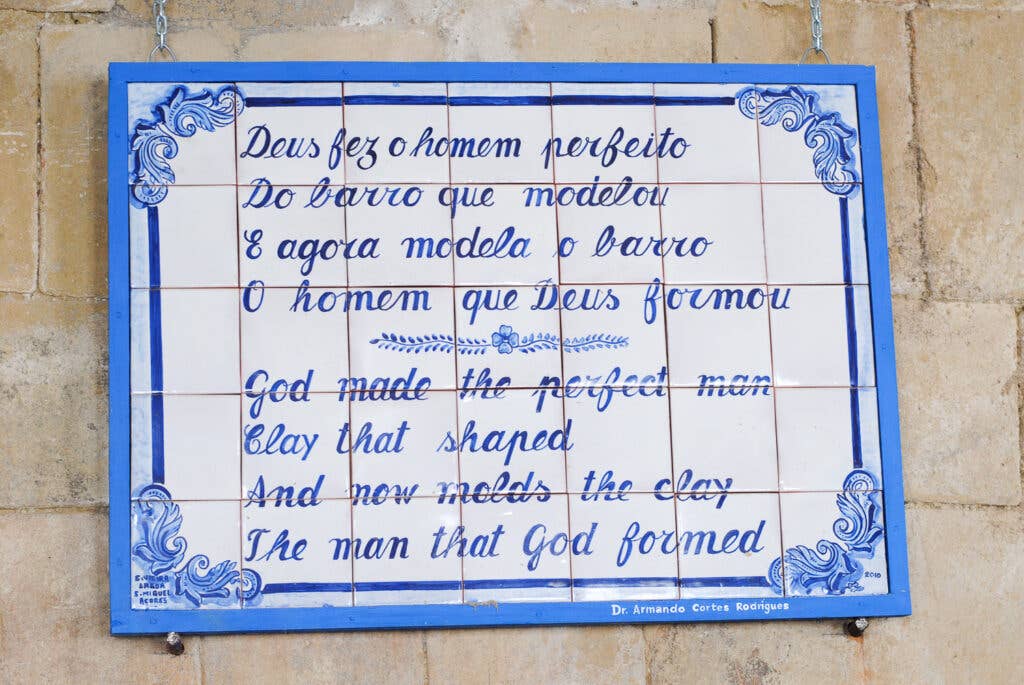 Deus fez o homem perfeito
Do barro que modelou
E agora modela o barro
O homem que Deus formou
God made the perfect man
Clay that shaped
And now molds the clay
The man that God formed
LAGOA
S. MIGUEL
AÇORES
2010
Dr. Armando Cortes Rodrigues